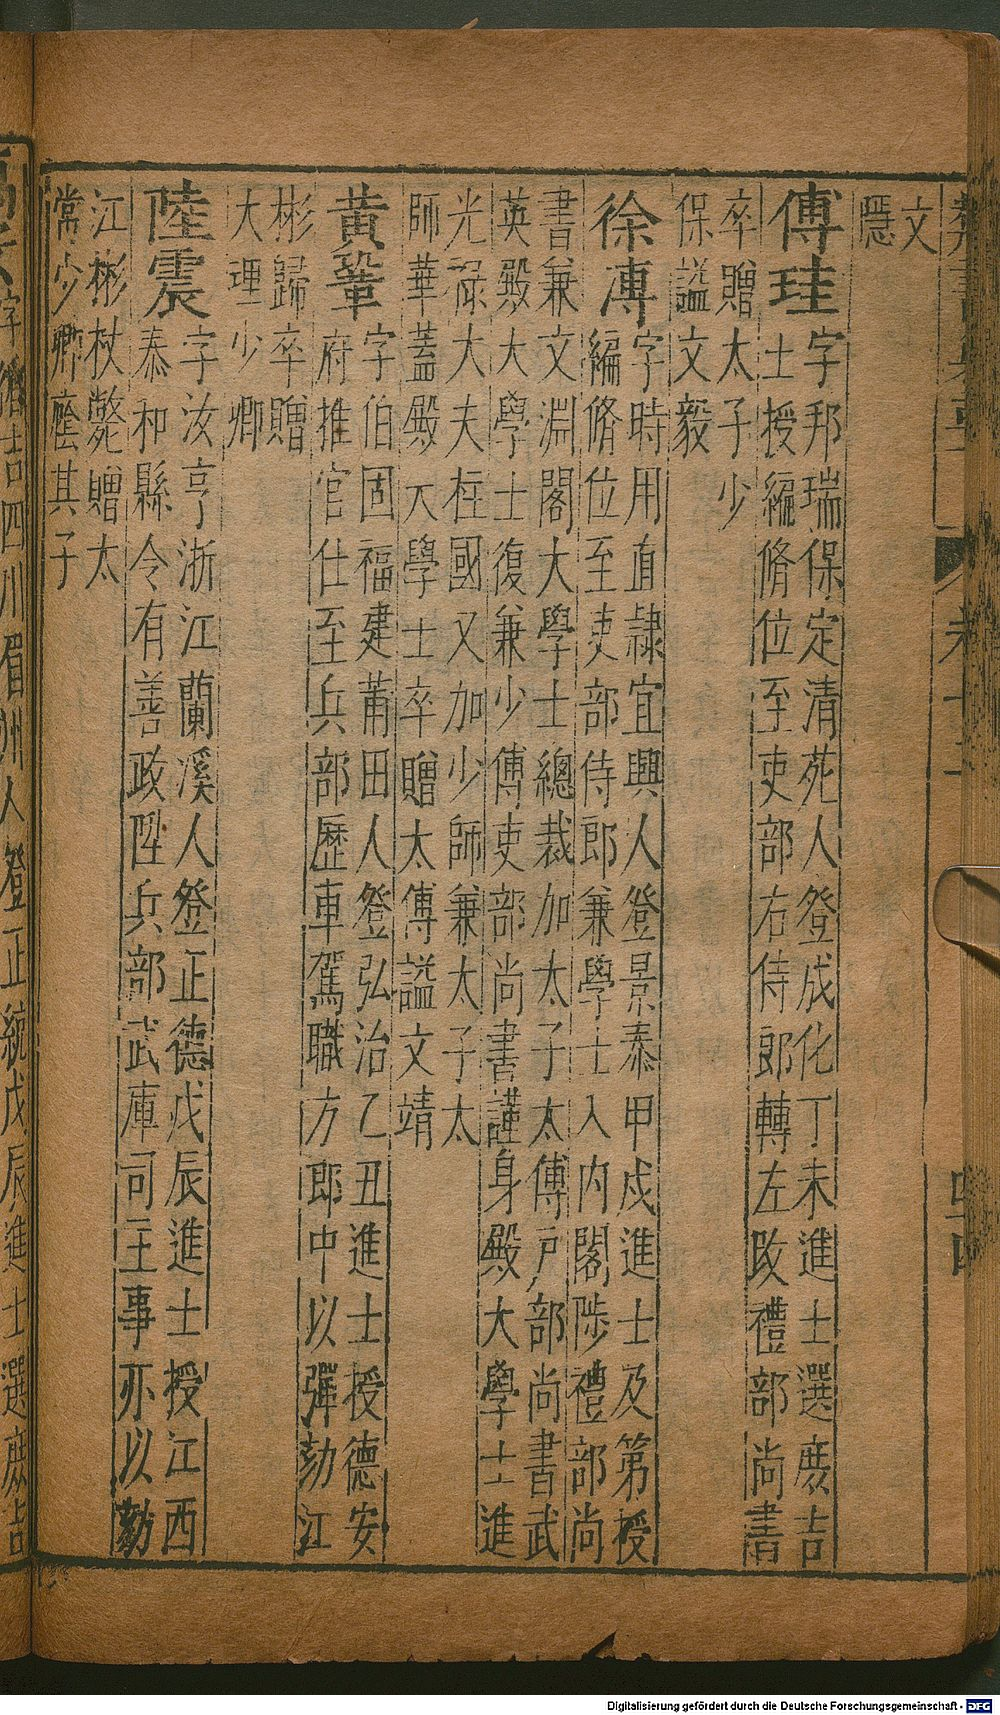 文
隱
傅珪字邦瑞保定清苑人登成化丁未進士選庶吉
士授編脩位至吏部右侍郎轉左改禮部尚書
卒贈太子少
保謚文毅
徐溥字時用直隸宜興人登景泰甲戍進士及第授
編脩位至吏部侍郎兼學士入内閣陟禮部尚
書兼文淵閣大學士總裁加太子太傅戸部尚書武
英殿大學士復兼少傅吏部尚書謹身殿大學士進
光祿大夫柱國又加少師兼太子太
師華蓋殿大學士卒贈太傅謚文靖
黃鞏字伯固福建莆田人登弘治乙丑進士授德安
府推官仕至兵部歷車駕職方郎中以彈劾江
彬歸卒贈
大理少卿
陸震字汝亨浙江蘭溪人登正德戊辰進士授江西
泰和縣令有善政陞兵部武庫司主事亦以劾
江彬杖斃贈太
常少卿廕其子
四川眉州人登正統戊辰進士選庶吉
Digitalisierung gefördert durch die Deutsche Forschungsgemeinschaft - DFG